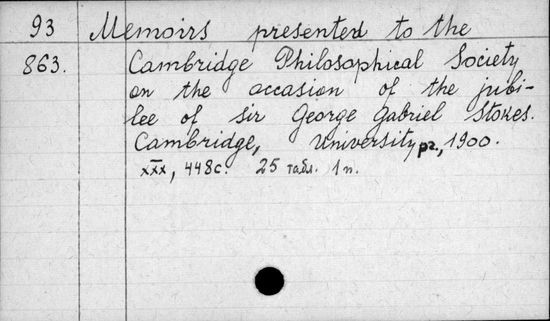 93 Memoirs presented to the
863. Cambridge Philosophical Society
on the occasion of the jubi-
lee of sir George Gabriel Stokes.
Cambridge, University pr., 1900.
xxx, 448 с. 25 табл. 1 п.